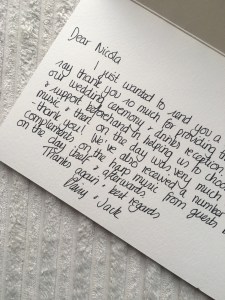 Dear Nicola
I just wanted to send you a
say thank you so much for providing th
our wedding ceremony + drinks reception
+ support beforehand in helping us to choo
music + then on the day was very much
'thank you'! We've also received a number
complements on the harp music from guests b
on the day itself + afterwards.
Thanks again + best regards
+ Jack